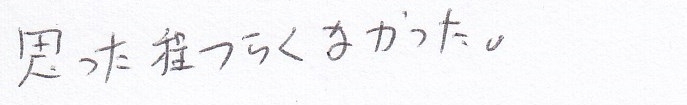 思った程つらくなかった。